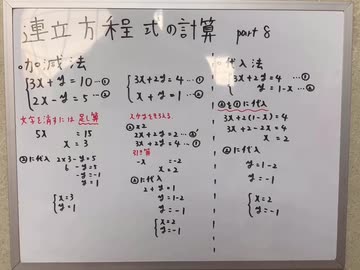 連立方程式の計算 part 8
○加減法
3x+y=10 …①
2x-y=5 …②
文字を消すには 足し算
5x =15
x =3
②に代入 2×3-y=5
6-y=5
-y=-1
y=1
x=3
y=1
3x+2y=4 …①
x+y=1 …②
②×2
2x+2y=2 …②'
3x+2y=4 …①
引き算
-x =-2
x=2
②に代入
2+y=1
y=-1
x=2
y=-1
○代入法
3x+2y=4 …①
y=1-x …②
②を①に代入
3x+2(1-x)=4
3x+2-2x=4
x=2
②に代入
y=1-2
y=-1
x=2
y=-1